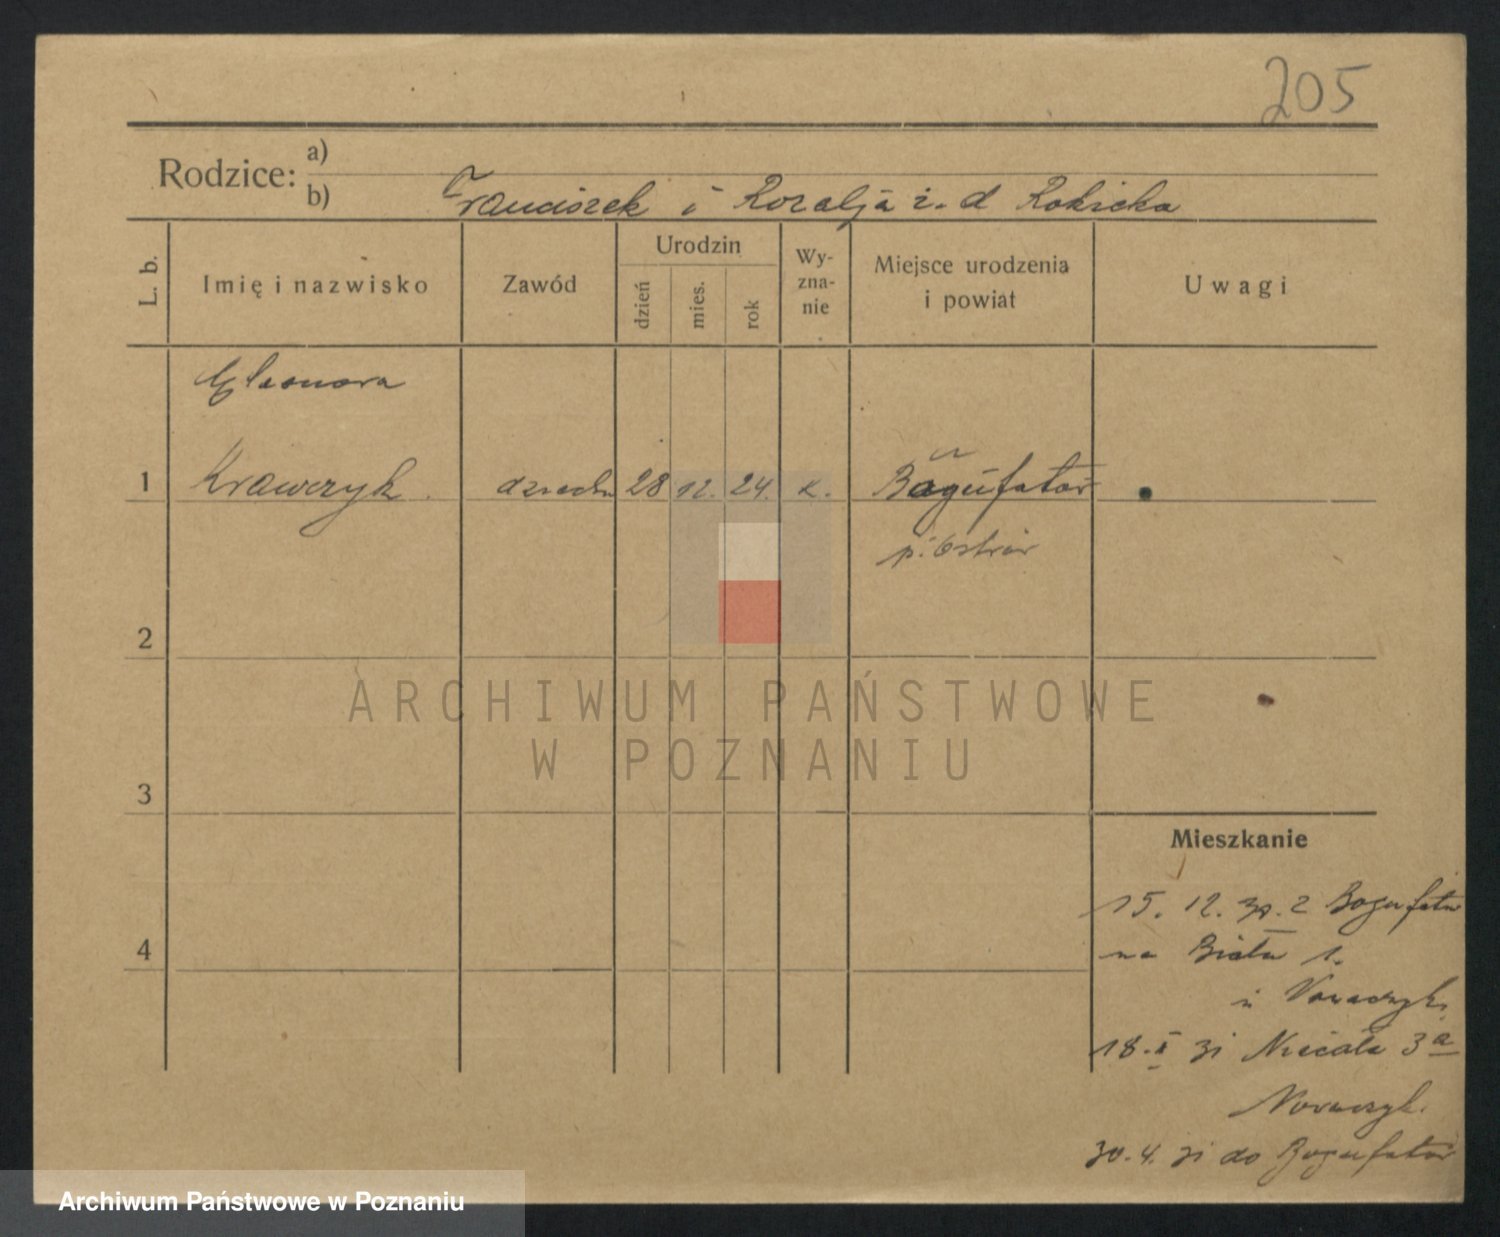 205
Rodzice: a)
b) Franciszek i Rozalja z. d Rokicka
L. b. Imię i nazwisko Zawód Urodzin dzień mies. rok Wy-zna-nie Miejsce urodzenia i powiat Uwagi
Eleonora
1 Krawczyk. dziecko 28 12. 24. k. Bogufałów
p. Ostrów
2
ARCHIWUM PAŃSTWOWE
W POZNANIU
3
Mieszkanie
15. 12. 30. z Bogufałów
4 na Biała 1.
18. 31 Niecała 3a
30. 4. 31 do Bogufałów
Archiwum Państwowe w Poznaniu